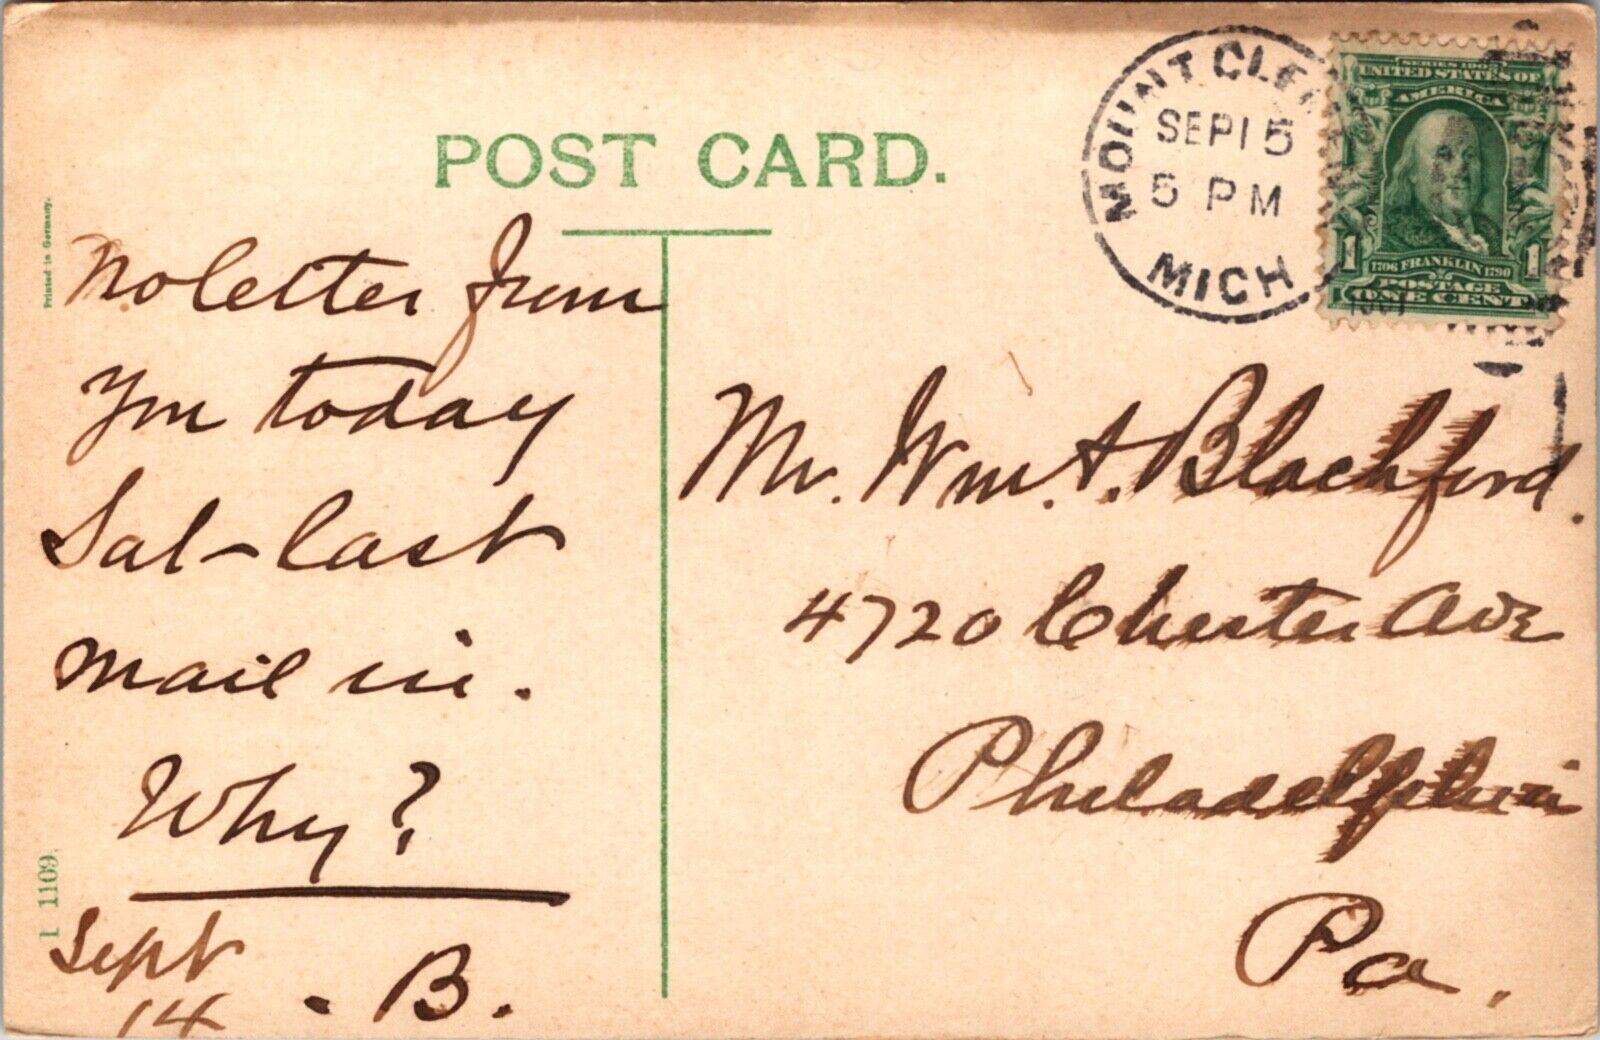 POST CARD.
Printed in Germany.
No letter from
You today
Sat - last
mail in.
Why?
Sept
14
. B.
I 1109.
MOUNT CLEM
SEP 15
5 PM
MICH
1907
SERIES 1902
UNITED STATES OF
AMERICA
1706 FRANKLIN 1790
1 1
POSTAGE
ONE CENT
Mr. Wm. A. Blachford.
4720 Chester Ave
Philadelphia
Pa.